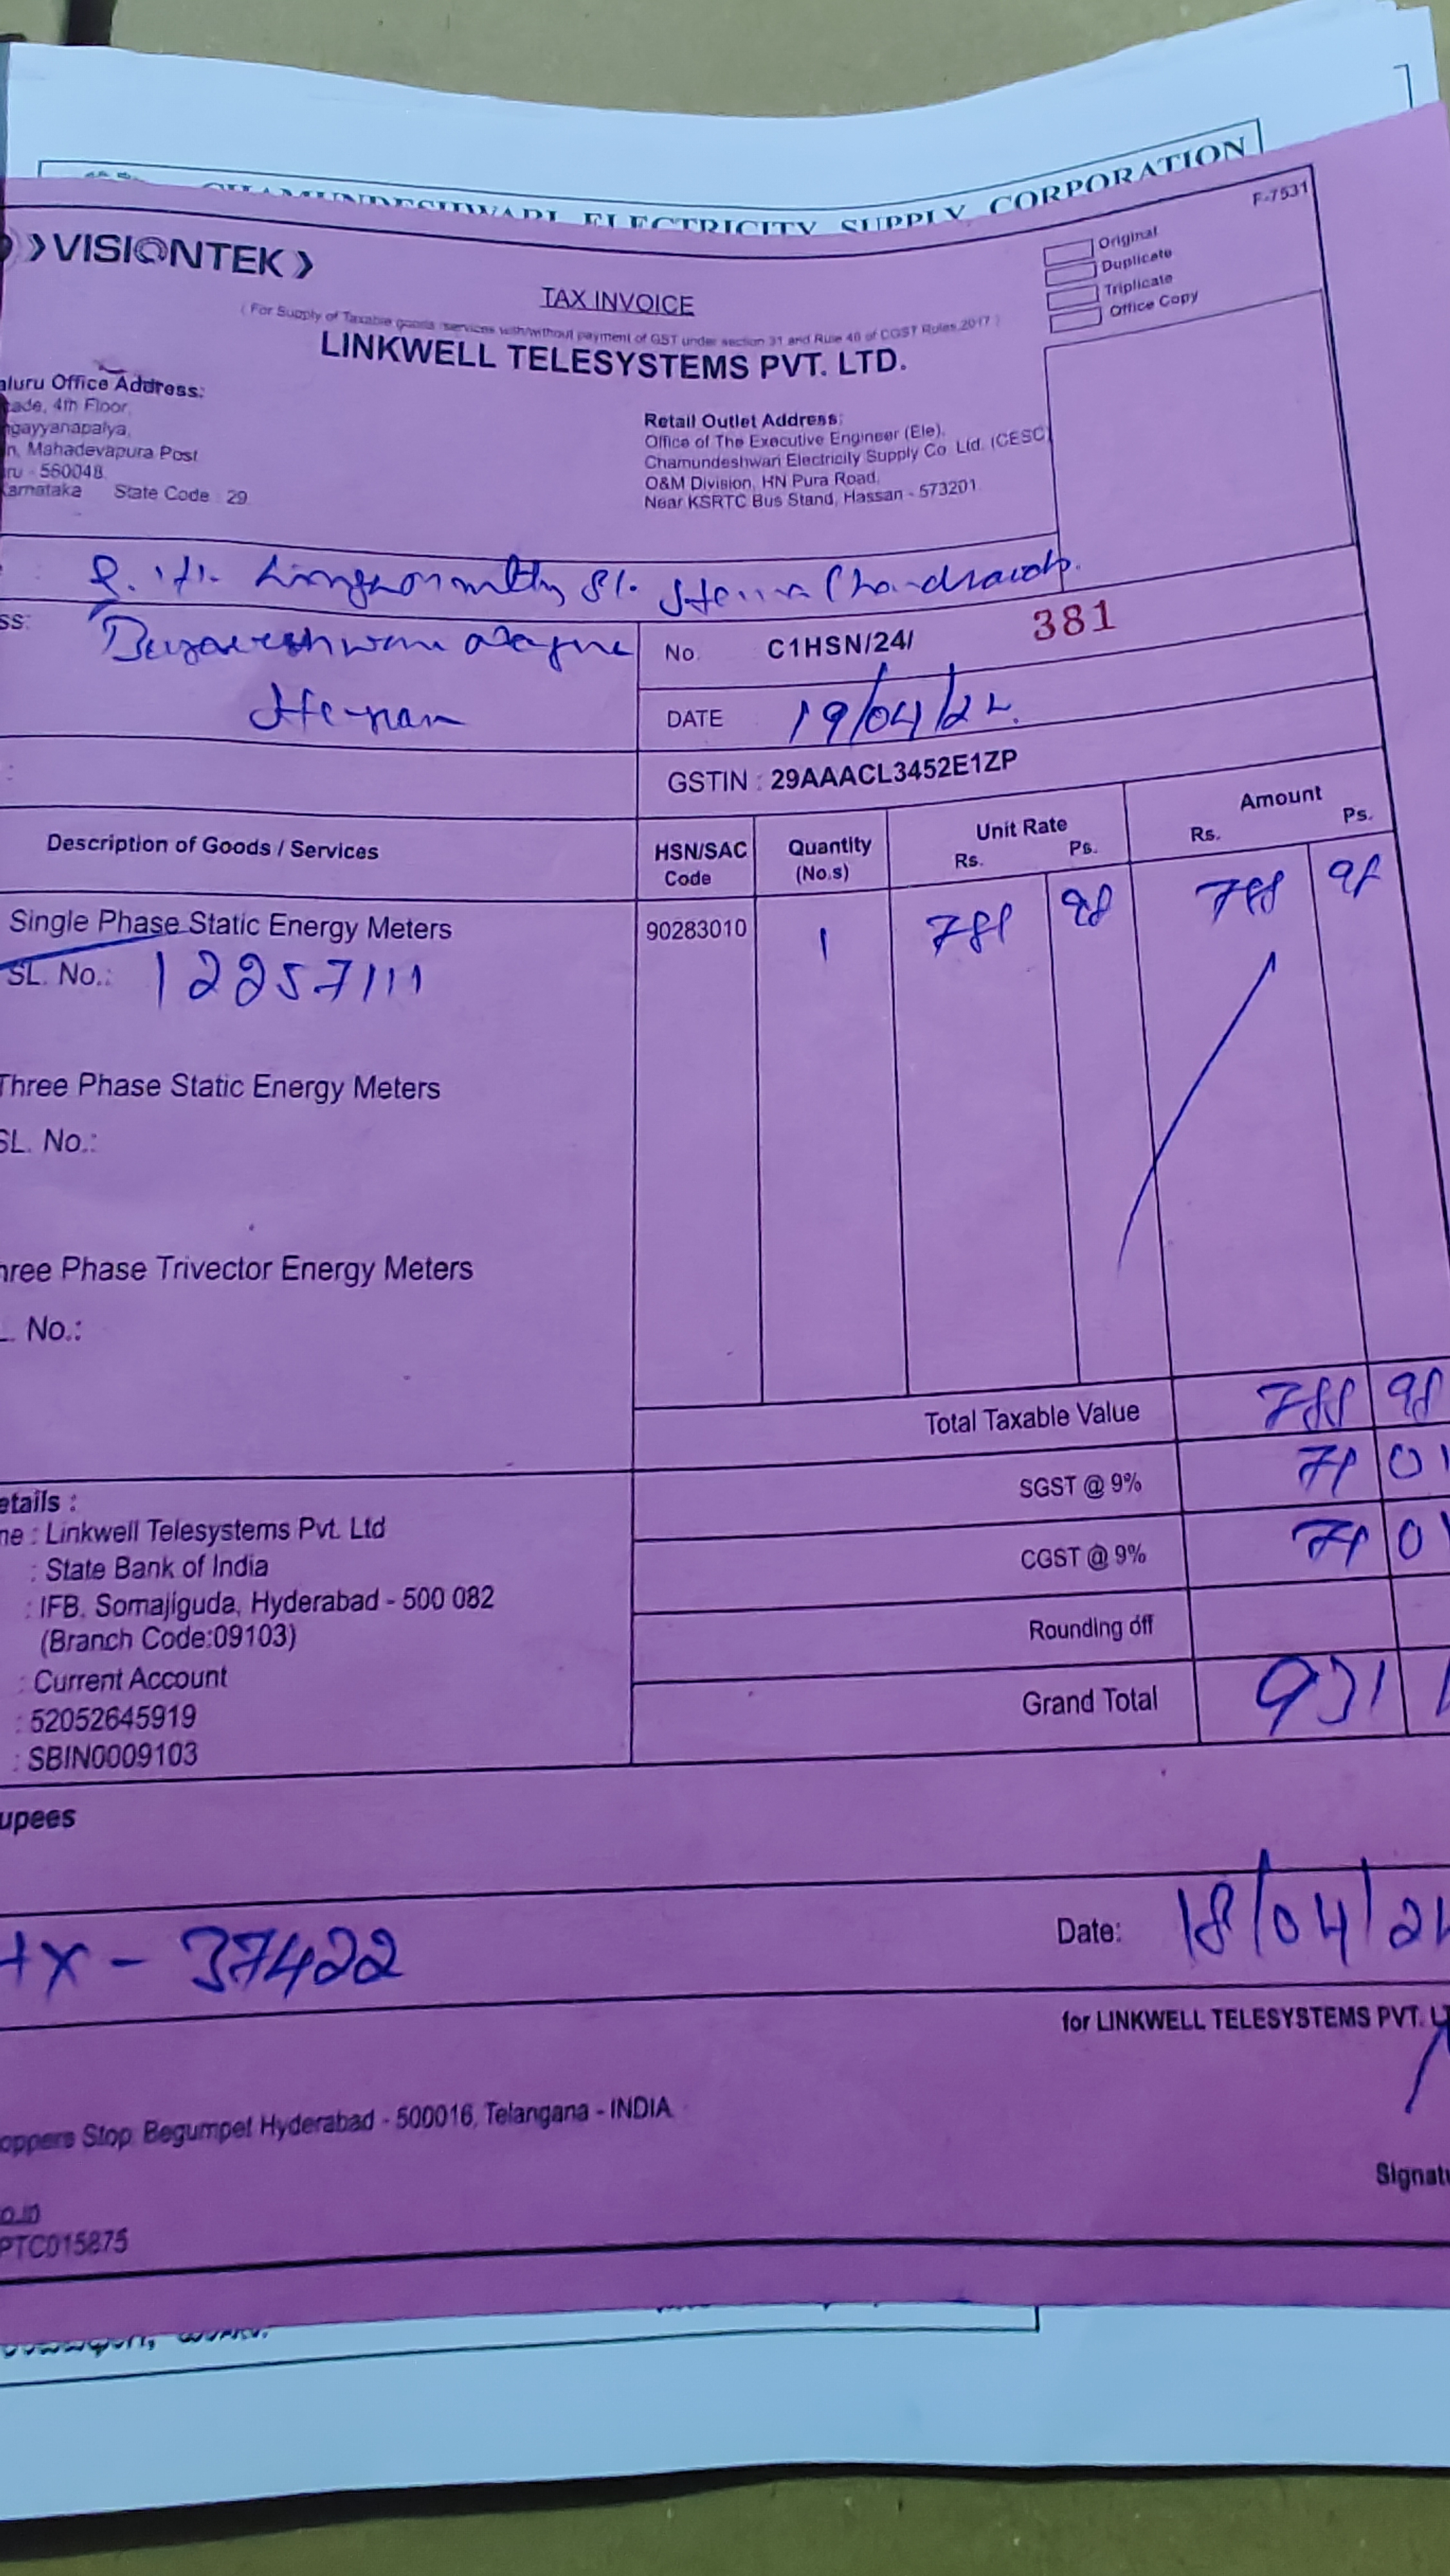 CHAMUNDESHWARI ELECTRICITY SUPPLY CORPORATION
F-7531
❯VISIONTEK❯
Original
Duplicate
Triplicate
Office Copy
TAX INVOICE
( For Supply of Taxable goods /services with/without payment of GST under section 31 and Rule 46 of CGST Rules,2017 )
LINKWELL TELESYSTEMS PVT. LTD.
aluru Office Address:
cade, 4th Floor,
ngayyanapalya,
n, Mahadevapura Post
ru - 560048
Karnataka State Code : 29
Retail Outlet Address:
Office of The Executive Engineer (Ele),
Chamundeshwari Electricity Supply Co. Ltd. (CESC)
O&M Division, HN Pura Road,
Near KSRTC Bus Stand, Hassan - 573201
ss:
No. C1HSN/24/ 381
DATE 19/04/24
GSTIN : 29AAACL3452E1ZP
Description of Goods / Services HSN/SAC Code Quantity (No.s) Unit Rate Rs. Ps. Amount Rs. Ps.
Single Phase Static Energy Meters 90283010 1 788 98 788 98
SL. No.: 12257111
Three Phase Static Energy Meters
SL. No.:
hree Phase Trivector Energy Meters
L. No.:
Total Taxable Value 788 98
SGST @ 9% 71 01
CGST @ 9% 71 01
Rounding off
Grand Total 931
etails :
me : Linkwell Telesystems Pvt. Ltd
: State Bank of India
: IFB, Somajiguda, Hyderabad - 500 082
(Branch Code:09103)
: Current Account
: 52052645919
: SBIN0009103
upees
Date: 18/04/24
37422
for LINKWELL TELESYSTEMS PVT. L
oppers Stop, Begumpet Hyderabad - 500016, Telangana - INDIA
Signatu
o.in
PTC015875